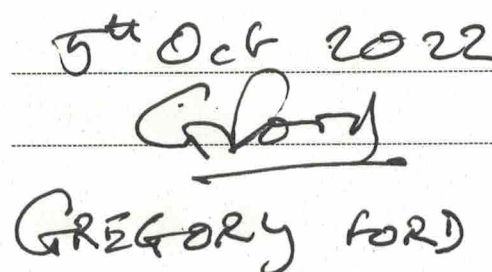 5th Oct 2022
GFord
GREGORY FORD